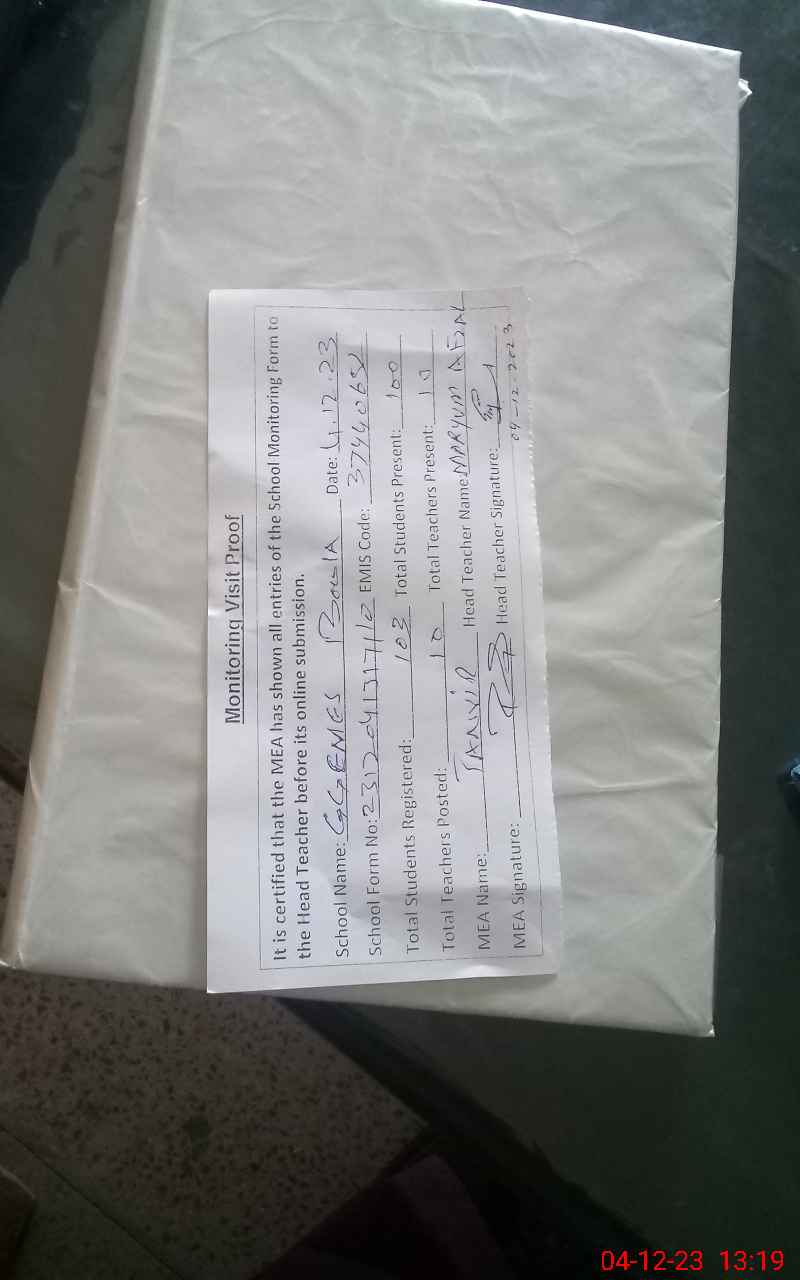 Monitoring Visit Proof
It is certified that the MEA has shown all entries of the School Monitoring Form to
the Head Teacher before its online submission.
School Name: GGEMES Date: 4.12.23
School Form No: EMIS Code:
Total Students Registered: 103 Total Students Present: 100
Total Teachers Posted: 10 Total Teachers Present: 10
MEA Name: TANVIR Head Teacher Name: MARYUM AFZAL
MEA Signature: Head Teacher Signature:
04-12-2023
04-12-23 13:19